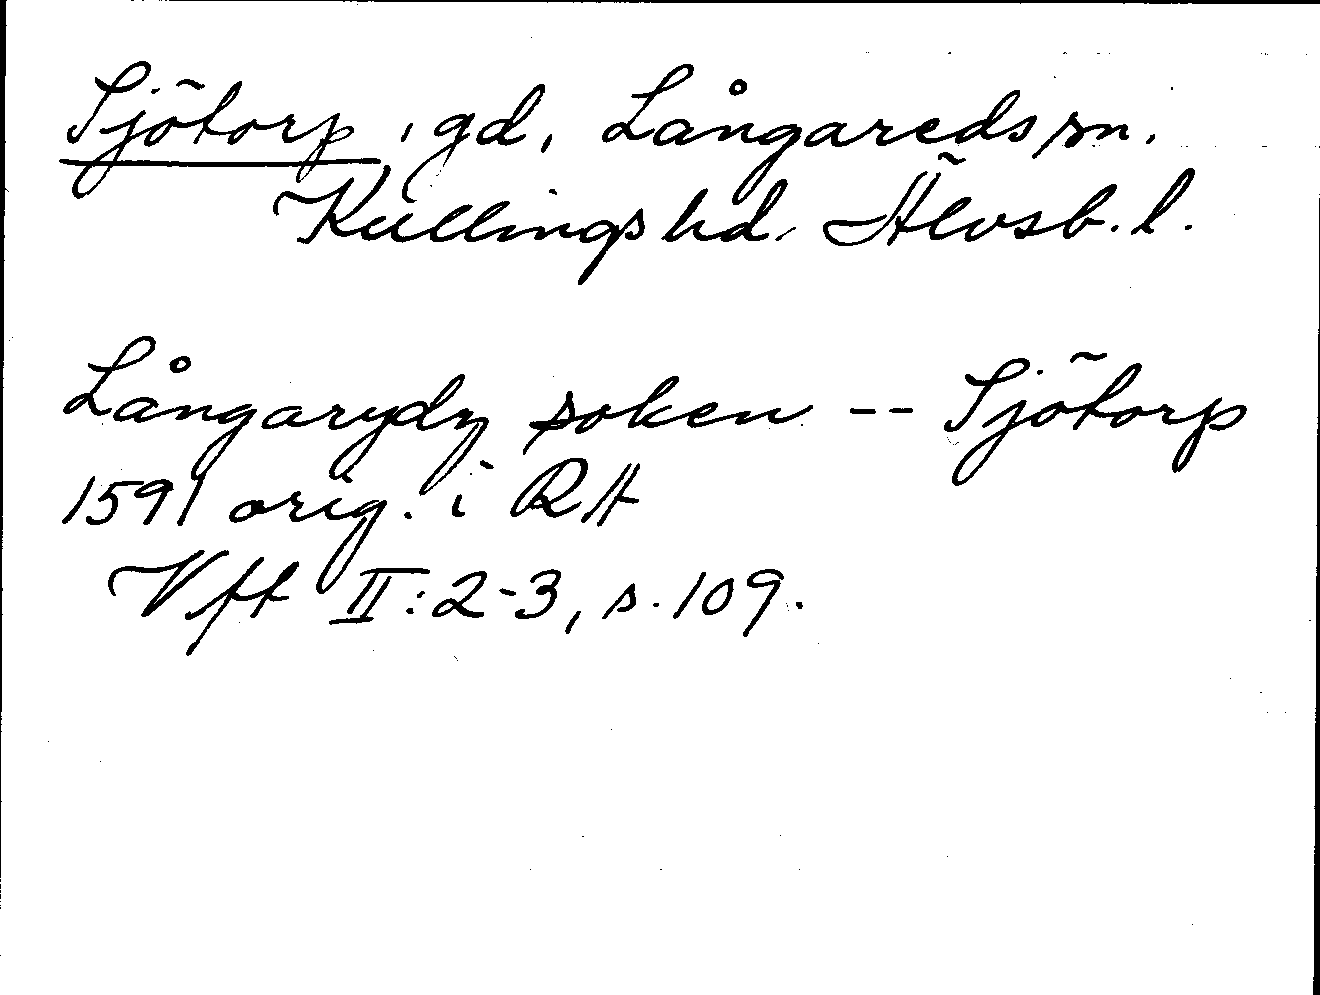 Sjötorp, gd, Långareds sn.
Kullings hd, Älvsb. l.
Långarydz soken -- Sjötorp
1591 orig. i RA
Vft II: 2-3, s. 109.